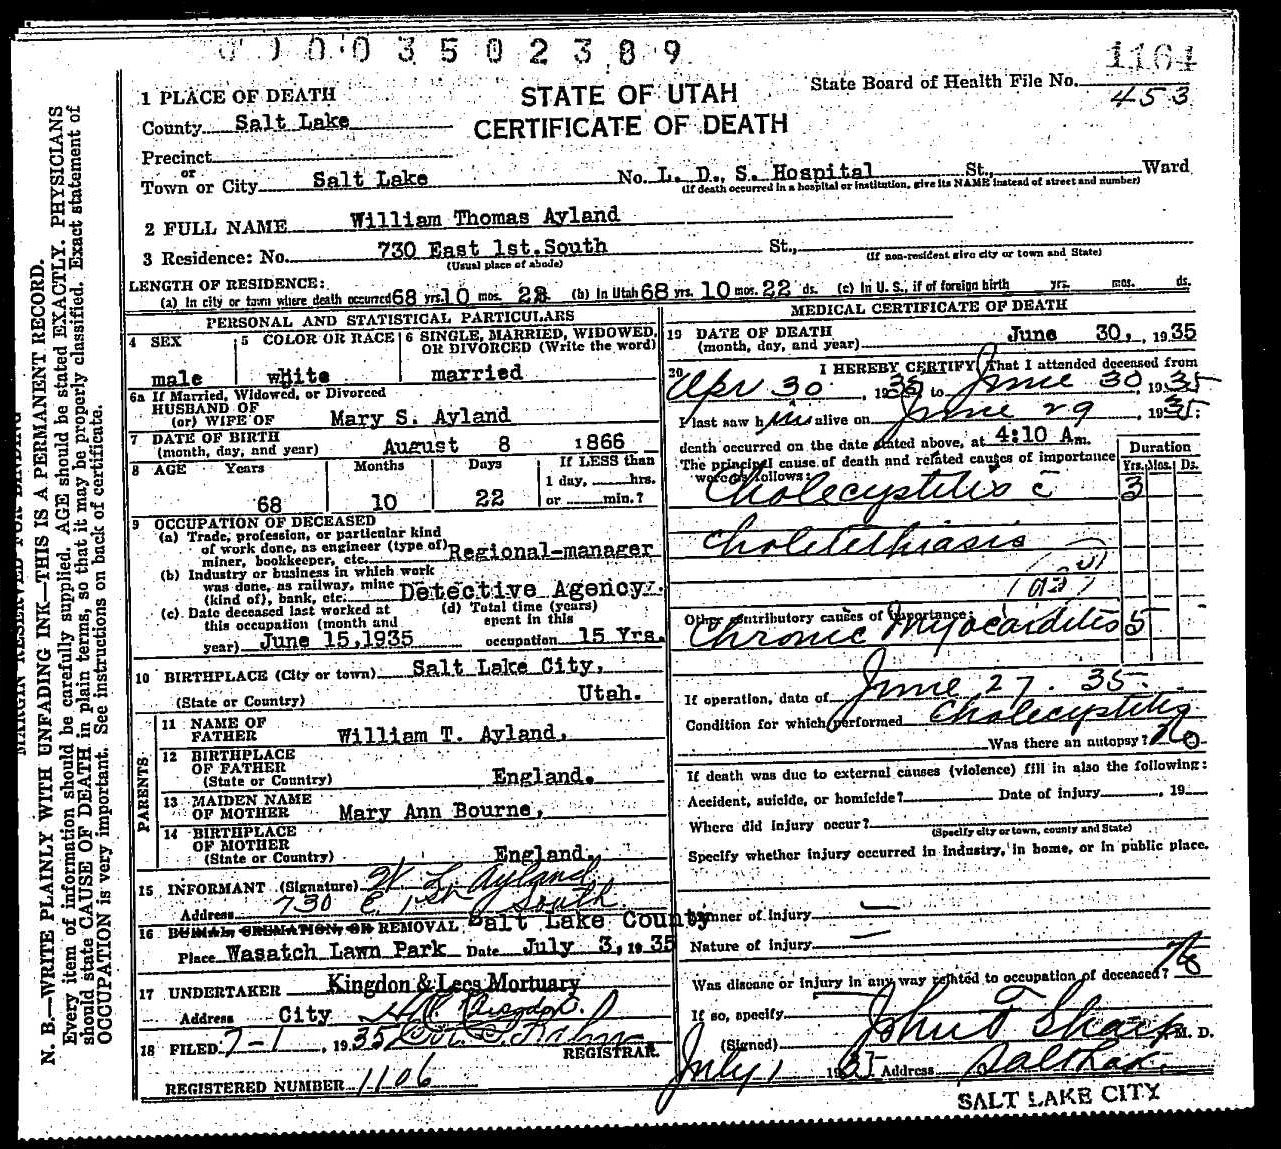 0 0 0 0 3 5 0 2 3 8 9
1164
State Board of Health File No. 453
STATE OF UTAH
CERTIFICATE OF DEATH
1 PLACE OF DEATH
County Salt Lake
Precinct
or
Town or City Salt Lake No. L. D. S. Hospital St., Ward
(If death occurred in a hospital or institution, give its NAME instead of street and number)
2 FULL NAME William Thomas Ayland
3 Residence: No. 730 East 1st. South St.,
(Usual place of abode) (If non-resident give city or town and State)
LENGTH OF RESIDENCE:
(a) In city or town where death occurred 68 yrs. 10 mos. 22. (b) In Utah 68 yrs. 10 mos. 22 ds. (c) In U. S., if of foreign birth yrs. mos. ds.
PERSONAL AND STATISTICAL PARTICULARS
4 SEX
male
5 COLOR OR RACE
white
6 SINGLE, MARRIED, WIDOWED,
OR DIVORCED (Write the word)
married
6a If Married, Widowed, or Divorced
HUSBAND OF
(or) WIFE OF Mary S. Ayland
7 DATE OF BIRTH
(month, day, and year) August 8 1866
8 AGE Years Months Days If LESS than
1 day, hrs.
68 10 22 or min.?
9 OCCUPATION OF DECEASED
(a) Trade, profession, or particular kind
of work done, as engineer (type of)
miner, bookkeeper, etc. Regional-manager
(b) Industry or business in which work
was done, as railway, mine
(kind of), bank, etc. Detective Agency.
(c) Date deceased last worked at
this occupation (month and
year) June 15, 1935
(d) Total time (years)
spent in this
occupation 15 Yrs.
10 BIRTHPLACE (City or town) Salt Lake City,
(State or Country) Utah.
PARENTS
11 NAME OF
FATHER William T. Ayland,
12 BIRTHPLACE
OF FATHER
(State or Country) England.
13 MAIDEN NAME
OF MOTHER Mary Ann Bourne,
14 BIRTHPLACE
OF MOTHER
(State or Country) England.
15 INFORMANT (Signature) W L Ayland
Address 730 E. 1st South
16 BURIAL, CREMATION, OR REMOVAL Salt Lake County
Place Wasatch Lawn Park Date July 3, 1935
17 UNDERTAKER Kingdon & Lees Mortuary
Address City
18 FILED 7-1, 1935
REGISTRAR.
REGISTERED NUMBER 1106
MEDICAL CERTIFICATE OF DEATH
19 DATE OF DEATH
(month, day, and year) June 30, 1935
20 I HEREBY CERTIFY, That I attended deceased from
Apr 30, 1935 to June 30, 1935
I last saw him alive on June 29, 1935;
death occurred on the date stated above, at 4:10 A m.
The principal cause of death and related causes of importance
were as follows:
Duration
Yrs. Mos. Ds.
Cholecystitis c̄ 3
Cholelithiasis
Other contributory causes of importance:
Chronic Myocarditis 5
If operation, date of June 27. 35.
Condition for which performed Cholecystitis
Was there an autopsy? No
If death was due to external causes (violence) fill in also the following:
Accident, suicide, or homicide? Date of injury , 19
Where did injury occur?
(Specify city or town, county and State)
Specify whether injury occurred in industry, in home, or in public place.
Manner of injury —
Nature of injury —
Was disease or injury in any way related to occupation of deceased? No
If so, specify
(Signed) John F Sharp M. D.
July 1 1935 Address Salt Lake
SALT LAKE CITY
MARGIN RESERVED FOR BINDING
N. B.—WRITE PLAINLY WITH UNFADING INK—THIS IS A PERMANENT RECORD.
Every item of information should be carefully supplied. AGE should be stated EXACTLY. PHYSICIANS
should state CAUSE OF DEATH in plain terms, so that it may be properly classified. Exact statement of
OCCUPATION is very important. See instructions on back of certificate.